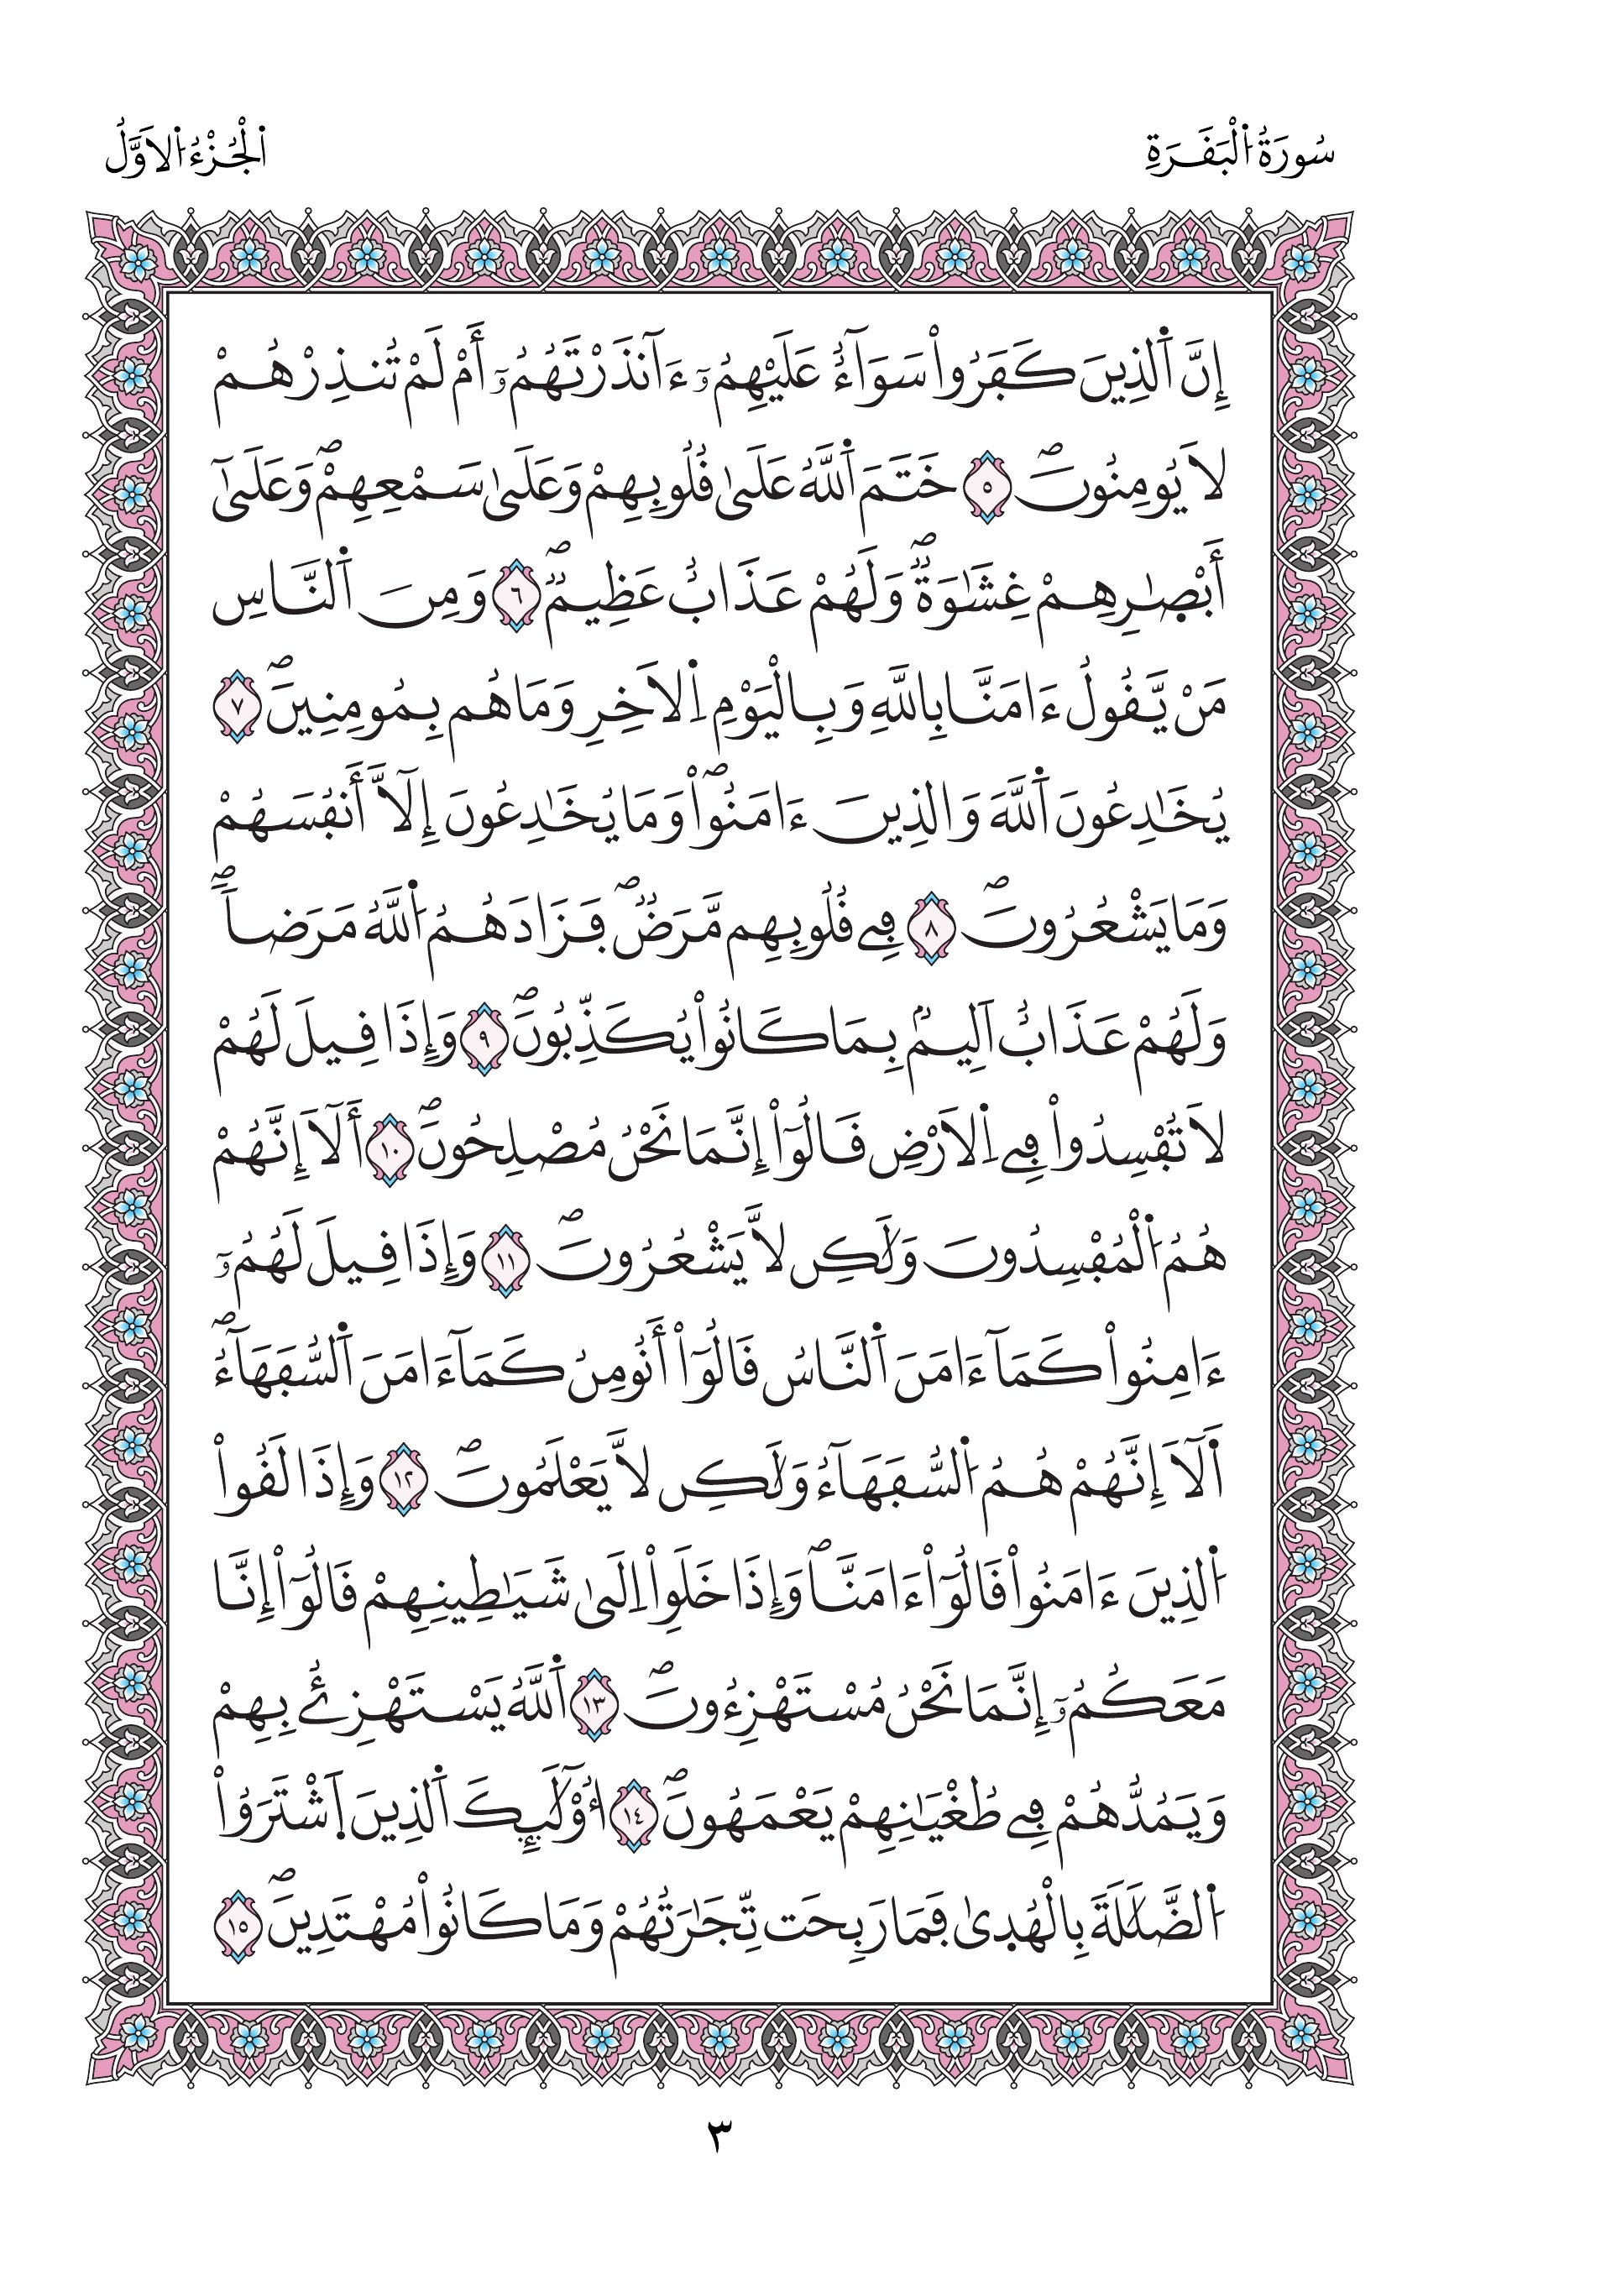 سُورَةُ اُ۬لْبَقَرَةِ
اُ۬لْجُزْءُ اُ۬لَاوَّلُ
إِنَّ اَ۬لذِينَ كَفَرُواْ سَوَآءٌ عَلَيْهِمُۥٓ ءَآنذَرْتَهُمُۥٓ أَمْ لَمْ تُنذِرْهُمْ
لَا يُومِنُونَۖ ٥ خَتَمَ اَ۬للَّهُ عَلَىٰ قُلُوبِهِمْ وَعَلَىٰ سَمْعِهِمْۖ وَعَلَىٰٓ
أَبْصٰ۪رِهِمْ غِشَٰوَةٌۖ وَلَهُمْ عَذَابٌ عَظِيمٌۖ ٦ وَمِنَ اَ۬لنَّاسِ
مَنْ يَّقُولُ ءَامَنَّا بِاللَّهِ وَبِالْيَوْمِ اِ۬لَاخِرِ وَمَا هُم بِمُومِنِينَۖ ٧
يُخَٰدِعُونَ اَ۬للَّهَ وَالذِينَ ءَامَنُواْۖ وَمَا يُخَٰدِعُونَ إِلَّآ أَنفُسَهُمْ
وَمَا يَشْعُرُونَۖ ٨ فِے قُلُوبِهِم مَّرَضٌۖ فَزَادَهُمُ اُ۬للَّهُ مَرَضاًۖ
وَلَهُمْ عَذَابٌ اَلِيمٌۢ بِمَا كَانُواْ يُكَذِّبُونَۖ ٩ وَإِذَا قِيلَ لَهُمْ
لَا تُفْسِدُواْ فِے اِ۬لَارْضِ قَالُوٓاْ إِنَّمَا نَحْنُ مُصْلِحُونَۖ ١٠ أَلَآ إِنَّهُمْ
هُمُ اُ۬لْمُفْسِدُونَ وَلَٰكِن لَّا يَشْعُرُونَۖ ١١ وَإِذَا قِيلَ لَهُمُۥٓ
ءَامِنُواْ كَمَآ ءَامَنَ اَ۬لنَّاسُ قَالُوٓاْ أَنُومِنُ كَمَآ ءَامَنَ اَ۬لسُّفَهَآءُۖ
اَلَآ إِنَّهُمْ هُمُ اُ۬لسُّفَهَآءُ وَلَٰكِن لَّا يَعْلَمُونَۖ ١٢ وَإِذَا لَقُواْ
اُ۬لذِينَ ءَامَنُواْ قَالُوٓاْ ءَامَنَّاۖ وَإِذَا خَلَوِاْ اِلَىٰ شَيَٰطِينِهِمْ قَالُوٓاْ إِنَّا
مَعَكُمُۥٓ إِنَّمَا نَحْنُ مُسْتَهْزِءُونَۖ ١٣ اَ۬للَّهُ يَسْتَهْزِۓُ بِهِمْ
وَيَمُدُّهُمْ فِے طُغْيَٰنِهِمْ يَعْمَهُونَۖ ١٤ أُوْلَٰٓئِكَ اَ۬لذِينَ اَ۪شْتَرَوُاْ
اُ۬لضَّلَٰلَةَ بِالْهُد۪ىٰ فَمَا رَبِحَت تِّجَٰرَتُهُمْ وَمَا كَانُواْ مُهْتَدِينَۖ ١٥
٣